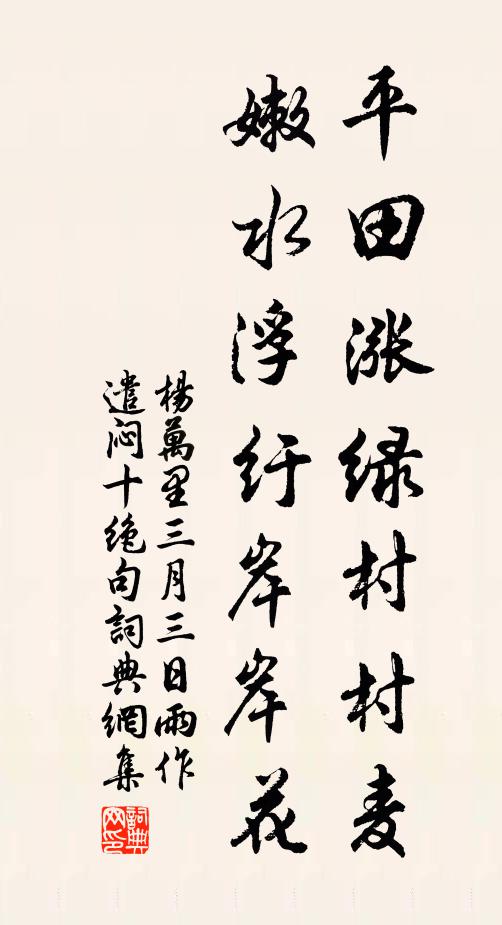 平田涨绿村村麦
嫩水浮红岸岸花
楊萬里三月三日雨作
遣闷十绝句詞典網集
詞典网印